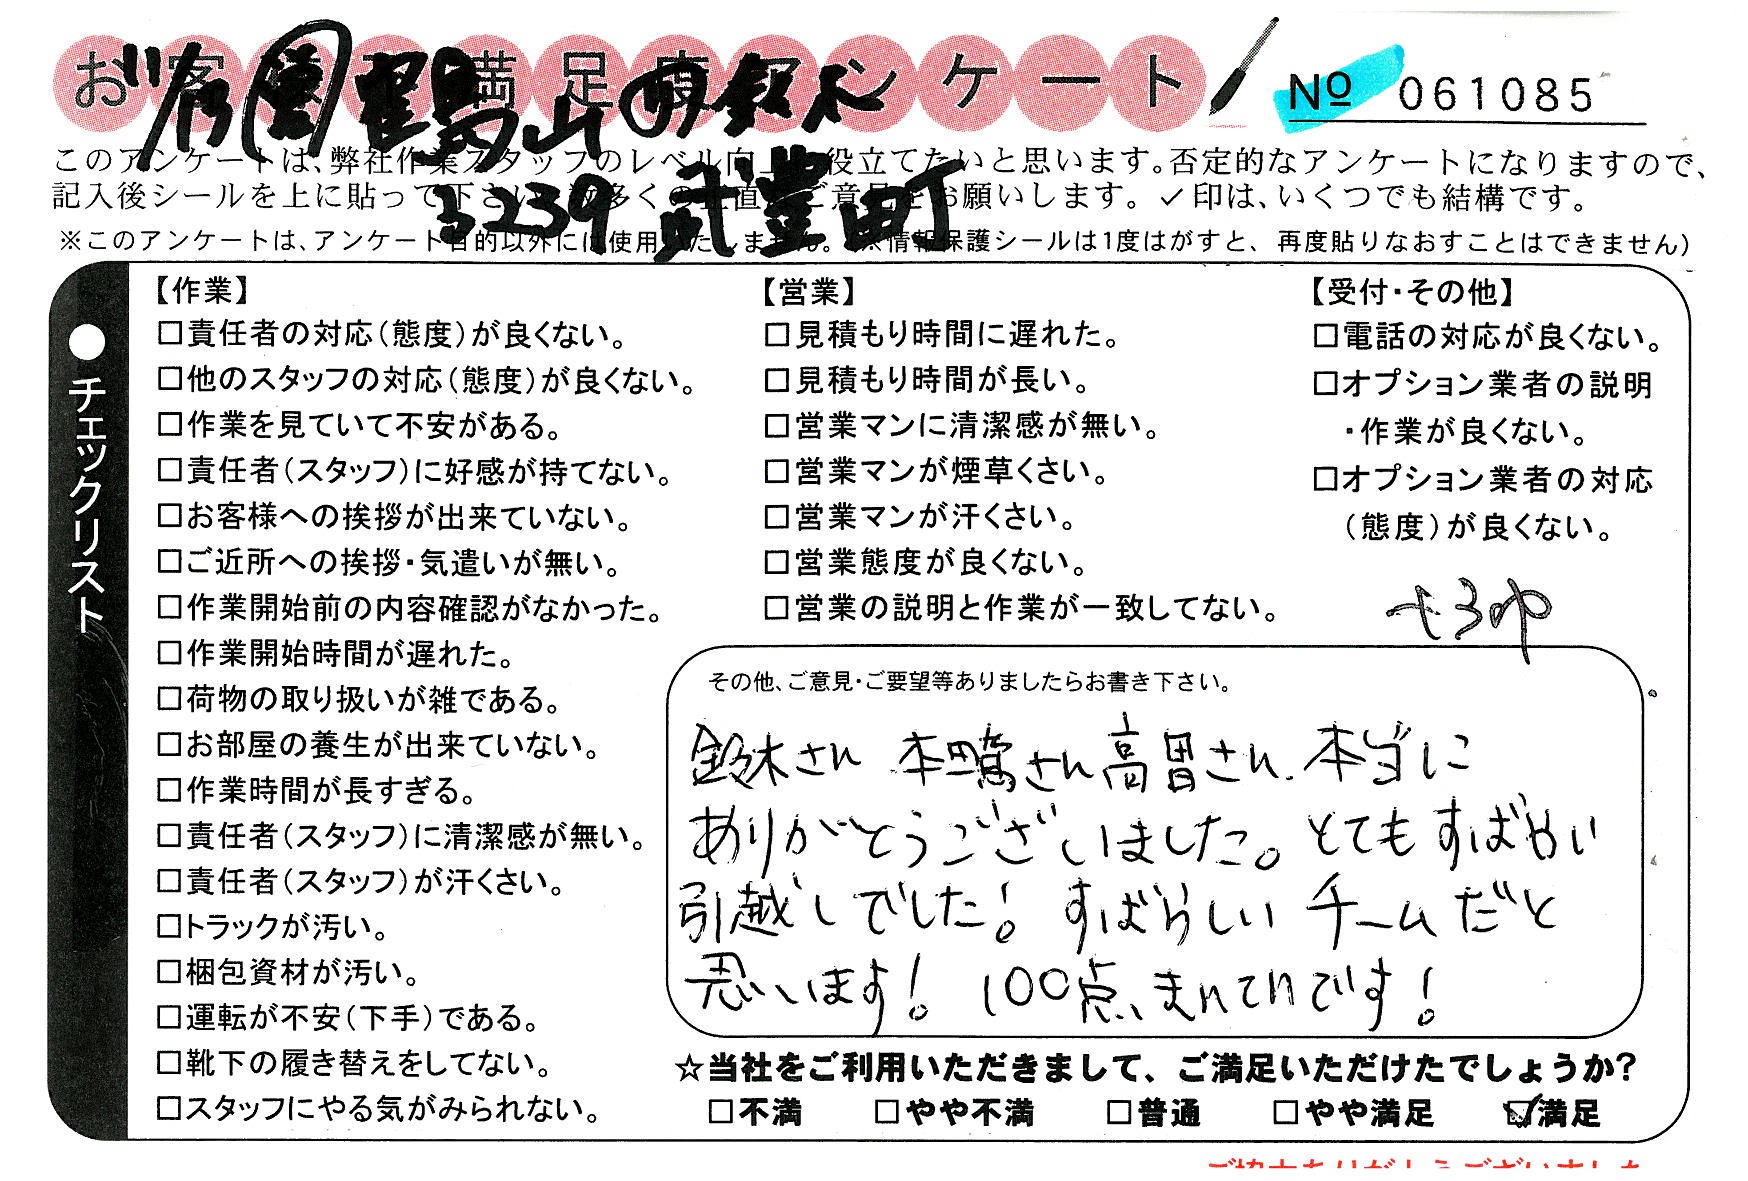 お客様満足度アンケート
№ 061085
3239 武豊町
このアンケートは、弊社作業スタッフのレベル向上に役立てたいと思います。否定的なアンケートになりますので、
記入後シールを上に貼って下さい。数多くの正直なご意見をお願いします。✓印は、いくつでも結構です。
※このアンケートは、アンケート目的以外には使用いたしません。（※情報保護シールは1度はがすと、再度貼りなおすことはできません）
●チェックリスト
【作業】
□責任者の対応（態度）が良くない。
□他のスタッフの対応（態度）が良くない。
□作業を見ていて不安がある。
□責任者（スタッフ）に好感が持てない。
□お客様への挨拶が出来ていない。
□ご近所への挨拶・気遣いが無い。
□作業開始前の内容確認がなかった。
□作業開始時間が遅れた。
□荷物の取り扱いが雑である。
□お部屋の養生が出来ていない。
□作業時間が長すぎる。
□責任者（スタッフ）に清潔感が無い。
□責任者（スタッフ）が汗くさい。
□トラックが汚い。
□梱包資材が汚い。
□運転が不安（下手）である。
□靴下の履き替えをしてない。
□スタッフにやる気がみられない。
【営業】
□見積もり時間に遅れた。
□見積もり時間が長い。
□営業マンに清潔感が無い。
□営業マンが煙草くさい。
□営業マンが汗くさい。
□営業態度が良くない。
□営業の説明と作業が一致してない。
【受付・その他】
□電話の対応が良くない。
□オプション業者の説明
・作業が良くない。
□オプション業者の対応
（態度）が良くない。
その他、ご意見・ご要望等ありましたらお書き下さい。
鈴木さん 本さん 高さん、本当に
ありがとうございました。とてもすばやい
引越しでした！すばらしいチームだと
思います！100点、まんてんです！
☆当社をご利用いただきまして、ご満足いただけたでしょうか？
□不満 □やや不満 □普通 □やや満足 ☑満足
ご協力ありがとうございました